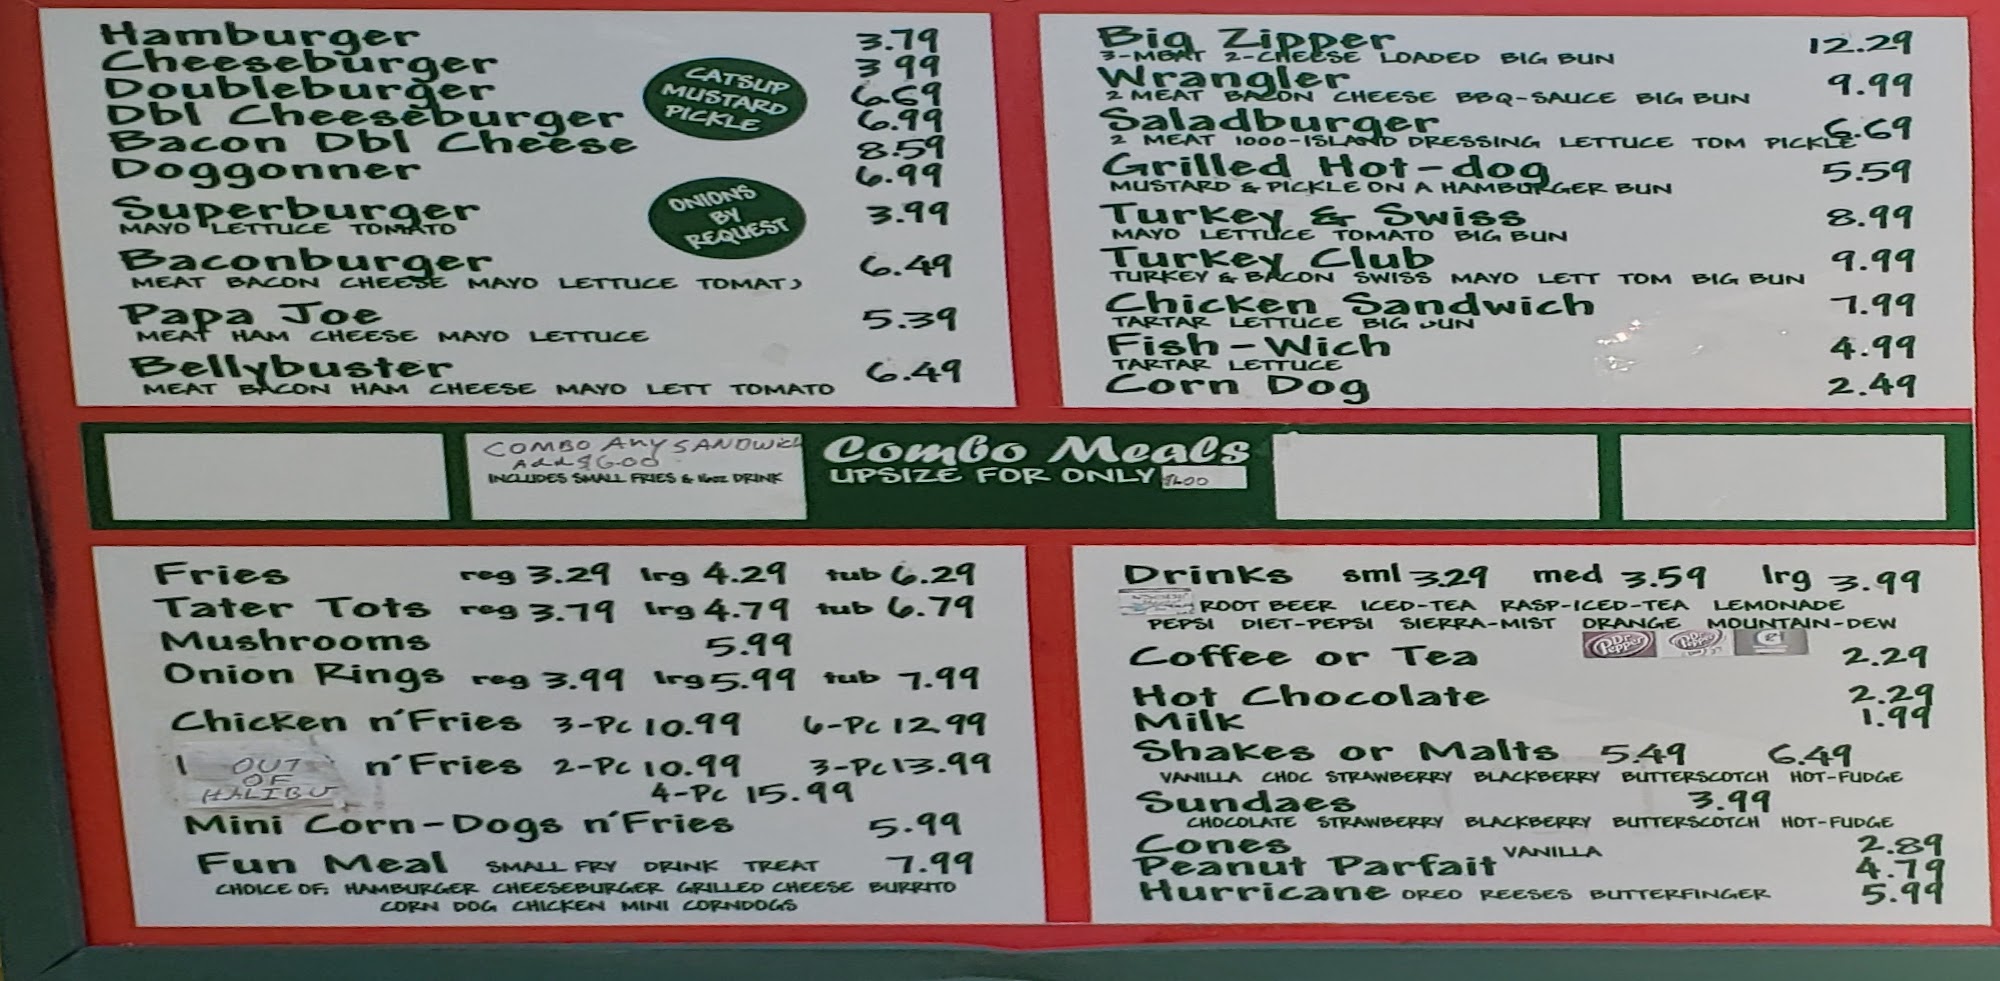 Hamburger 3.79
Cheeseburger 3 99
Doubleburger 6.69
Dbl Cheeseburger 6.99
Bacon Dbl Cheese 8.59
Doggonner 6.99
CATSUP
MUSTARD
PICKLE
Superburger 3.99
MAYO LETTUCE TOMATO
ONIONS
BY
REQUEST
Baconburger 6.49
MEAT BACON CHEESE MAYO LETTUCE TOMATO
Papa Joe 5.39
MEAT HAM CHEESE MAYO LETTUCE
Bellybuster 6.49
MEAT BACON HAM CHEESE MAYO LETT TOMATO
Big Zipper 12.29
3-MEAT 2-CHEESE LOADED BIG BUN
Wrangler 9.99
2 MEAT BACON CHEESE BBQ-SAUCE BIG BUN
Saladburger 6.69
2 MEAT 1000-ISLAND DRESSING LETTUCE TOM PICKLE
Grilled Hot-dog 5.59
MUSTARD & PICKLE ON A HAMBURGER BUN
Turkey & Swiss 8.99
MAYO LETTUCE TOMATO BIG BUN
Turkey Club 9.99
TURKEY & BACON SWISS MAYO LETT TOM BIG BUN
Chicken Sandwich 7.99
TARTAR LETTUCE BIG BUN
Fish-Wich 4.99
TARTAR LETTUCE
Corn Dog 2.49
COMBO Any SANDWich
Add $6.00
INCLUDES SMALL FRIES & 16oz DRINK
Combo Meals
UPSIZE FOR ONLY
Fries reg 3.29 lrg 4.29 tub 6.29
Tater Tots reg 3.79 lrg 4.79 tub 6.79
Mushrooms 5.99
Onion Rings reg 3.99 lrg 5.99 tub 7.99
Chicken n'Fries 3-Pc 10.99 6-Pc 12.99
n'Fries 2-Pc 10.99 3-Pc 13.99
OUT
OF
HALIBU
4-Pc 15.99
Mini Corn-Dogs n'Fries 5.99
Fun Meal SMALL FRY DRINK TREAT 7.99
CHOICE OF: HAMBURGER CHEESEBURGER GRILLED CHEESE BURRITO
CORN DOG CHICKEN MINI CORNDOGS
Drinks sml 3.29 med 3.59 lrg 3.99
ROOT BEER ICED-TEA RASP-ICED-TEA LEMONADE
PEPSI DIET-PEPSI SIERRA-MIST ORANGE MOUNTAIN-DEW
Dr Pepper Dr Pepper
Coffee or Tea 2.29
Hot Chocolate 2.29
Milk 1.99
Shakes or Malts 5.49 6.49
VANILLA CHOC STRAWBERRY BLACKBERRY BUTTERSCOTCH HOT-FUDGE
Sundaes 3.99
CHOCOLATE STRAWBERRY BLACKBERRY BUTTERSCOTCH HOT-FUDGE
Cones VANILLA 2.89
Peanut Parfait 4.79
Hurricane OREO REESES BUTTERFINGER 5.99